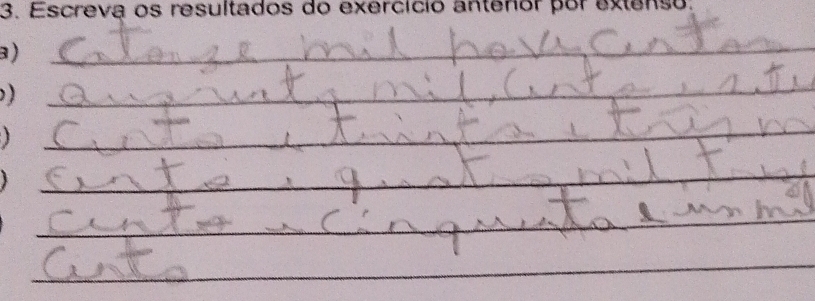 3. Escreva os resultados do exercício anterior por extenso.
a) Catorze mil novecentos
b) mil, cento
c) cento e trinta e três m
cento e quatro mil
cento e cinquenta e um mil
cento